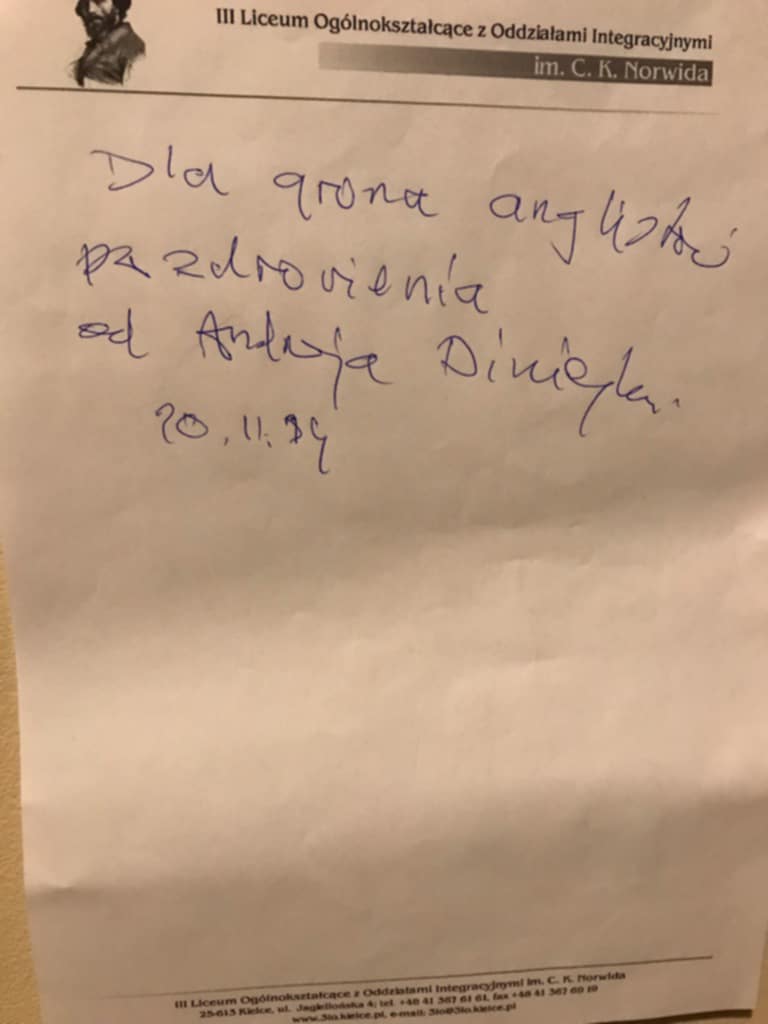 III Liceum Ogólnokształcące z Oddziałami Integracyjnymi
im. C. K. Norwida
Dla grona anglistów
pozdrowienia
od Andrzeja
20.11.94
III Liceum Ogólnokształcące z Oddziałami Integracyjnymi im. C. K. Norwida
25-613 Kielce, ul. Jagiellońska 4; tel. +48 41 367 61 61, fax +48 41 367 69 19
www.3lo.kielce.pl, e-mail: 3lo@3lo.kielce.pl